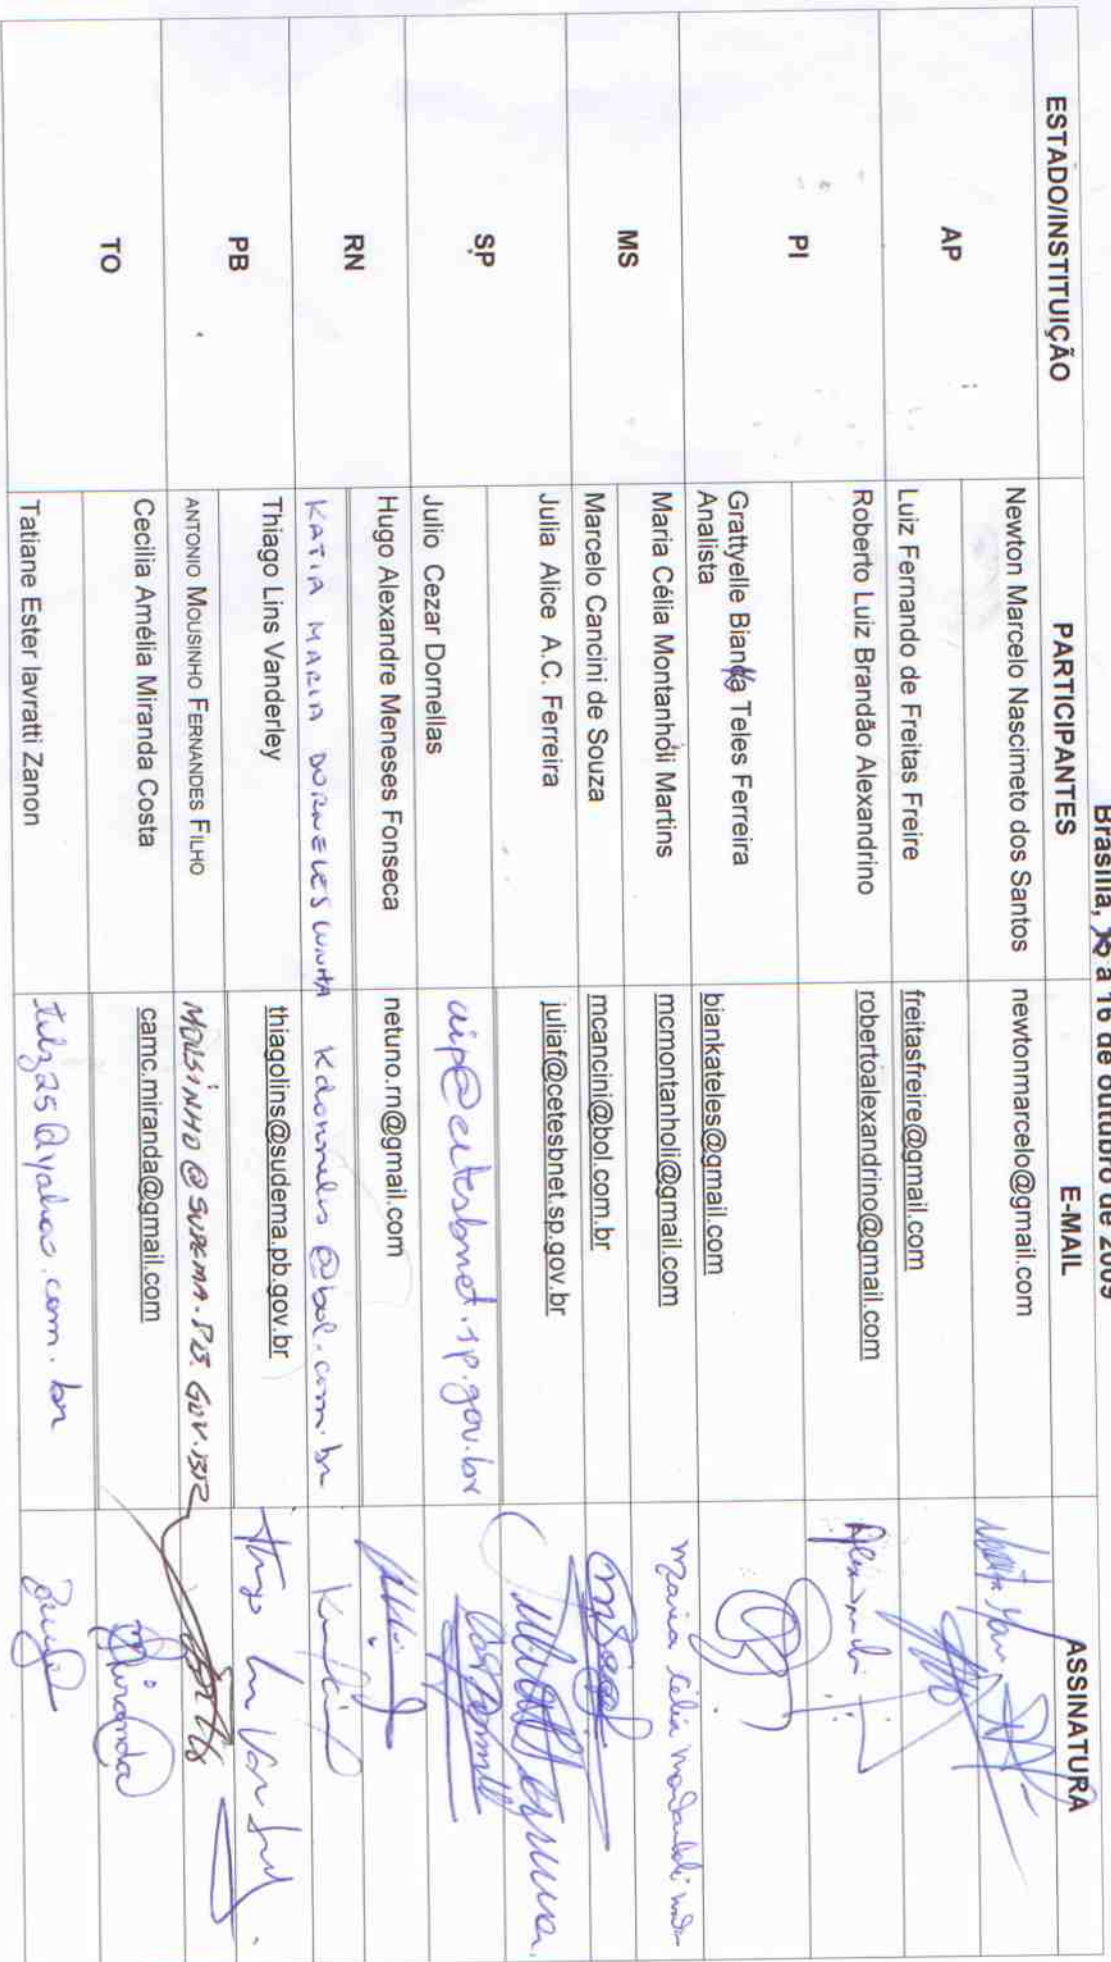 Brasília, a 16 de outubro de 2009
ESTADO/INSTITUIÇÃO PARTICIPANTES E-MAIL ASSINATURA
AP
Newton Marcelo Nascimeto dos Santos newtonmarcelo@gmail.com
Luiz Fernando de Freitas Freire freitasfreire@gmail.com
PI
Roberto Luiz Brandão Alexandrino robertoalexandrino@gmail.com
Grattyelle Bianka Teles Ferreira biankateles@gmail.com
Analista
MS
Maria Célia Montanholi Martins mcmontanholi@gmail.com Maria Célia
Marcelo Cancini de Souza mcancini@bol.com.br
SP
Julia Alice A.C. Ferreira juliaf@cetesbnet.sp.gov.br
Julio Cezar Dornellas @cetesbnet.sp.gov.br
RN
Hugo Alexandre Meneses Fonseca netuno.rn@gmail.com
KATIA MARIA DORNELES CUNHA @bol.com.br
PB
Thiago Lins Vanderley thiagolins@sudema.pb.gov.br
ANTONIO MOUSINHO FERNANDES FILHO MOUSINHO@SUDEMA.PB.GOV.BR
TO
Cecilia Amélia Miranda Costa camc.miranda@gmail.com Miranda
Tatiane Ester Iavratti Zanon @yahoo.com.br